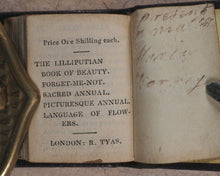 Price One Shilling each.
THE LILLIPUTIAN
BOOK OF BEAUTY.
FORGET-ME-NOT.
SACRED ANNUAL.
PICTURESQUE ANNUAL.
LANGUAGE OF FLOW-
ERS.
LONDON: R. TYAS.
Harvey